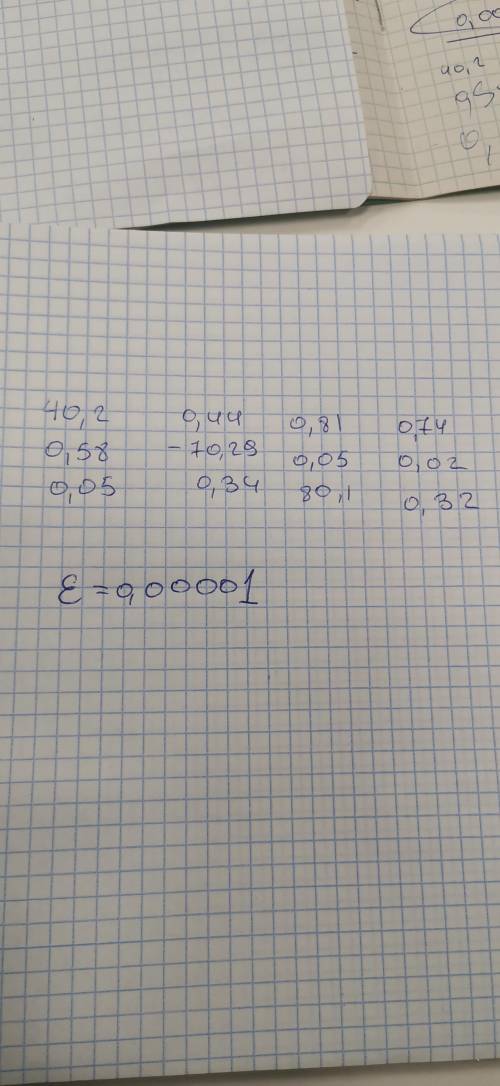 0,00
40,2
0,
40,2 0,44 0,81 0,74
0,58 -70,29 0,05 0,02
0,05 0,34 80,1 0,32
ε = 0,00001